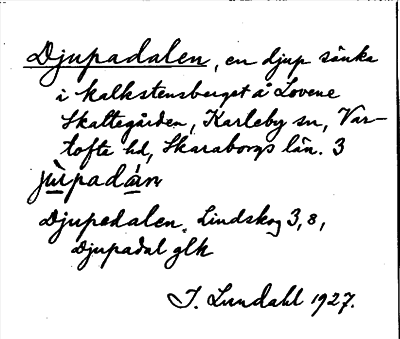 Djupadalen, en djup sänka
i kalkstensberget å Lovene
Skattegården, Karleby sn, Var-
tofte hd, Skaraborgs län. 3
jùpadán
Djupedalen. Lindskog 3, 8,
Djupadal glk
I. Lundahl 1927.